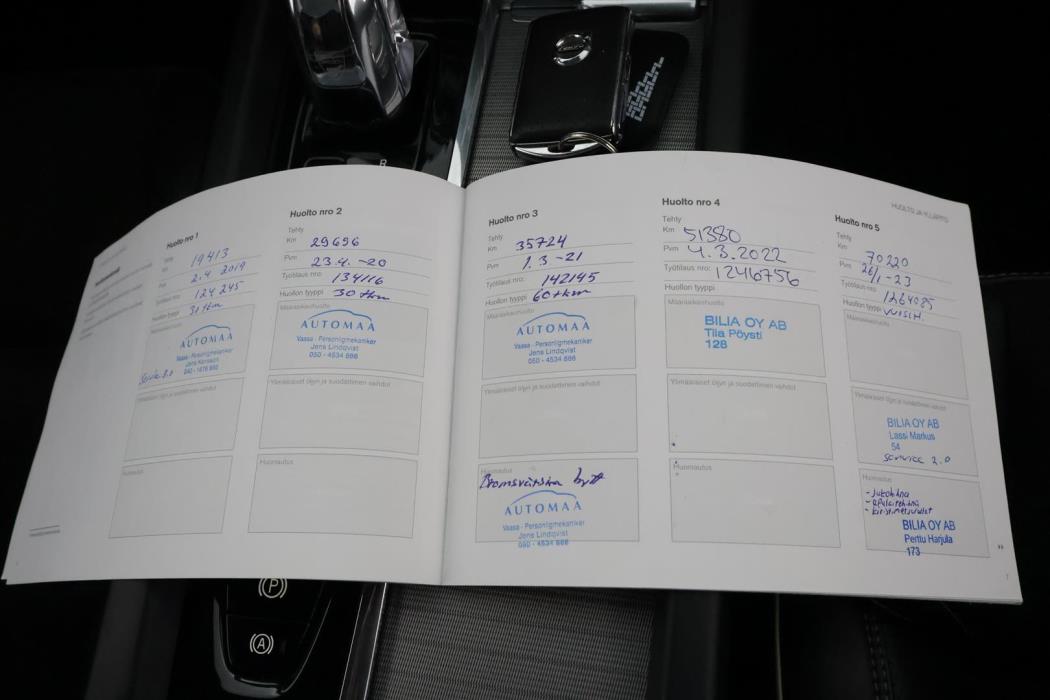 HUOLTO JA YLLÄPITO
Huolto nro 1
Tehty
Km 19413
Pvm 2.4 2019
Työtilaus nro: 124 245
Huollon tyyppi
Määräaikaishuolto
AUTOMAA
Vaasa - Personligmekaniker
Ylimääräiset öljyn ja suodattimen vaihdot
Huomautus
Huolto nro 2
Tehty
Km 29696
Pvm 23.4.-20
Työtilaus nro: 134116
Huollon tyyppi 30 tkm
Määräaikaishuolto
AUTOMAA
Vaasa - Personligmekaniker
Jens Lindqvist
050 - 4534 666
Ylimääräiset öljyn ja suodattimen vaihdot
Huomautus
Huolto nro 3
Tehty
Km 35724
Pvm 1.3 -21
Työtilaus nro: 142145
Huollon tyyppi 60 tkm
Määräaikaishuolto
AUTOMAA
Vaasa - Personligmekaniker
Jens Lindqvist
050 - 4534 666
Ylimääräiset öljyn ja suodattimen vaihdot
Huomautus
Bromsvätska bytt
AUTOMAA
Vaasa - Personligmekaniker
Jens Lindqvist
050 - 4534 666
Huolto nro 4
Tehty
Km 51380
Pvm 4.3.2022
Työtilaus nro: 1246756
Huollon tyyppi
Määräaikaishuolto
BILIA OY AB
Tiia Pöysti
128
Ylimääräiset öljyn ja suodattimen vaihdot
Huomautus
Huolto nro 5
Tehty
Km 70220
Pvm 26/1-23
Työtilaus nro: 1264085
Huollon tyyppi
Määräaikaishuolto
Ylimääräiset öljyn ja suodattimen vaihdot
BILIA OY AB
Lassi Markus
54
service 2.0
Huomautus
- jakohihna
- apulaitehihna
- kiristimet/rullat
BILIA OY AB
Perttu Harjula
173
7
R
(P)
(A)